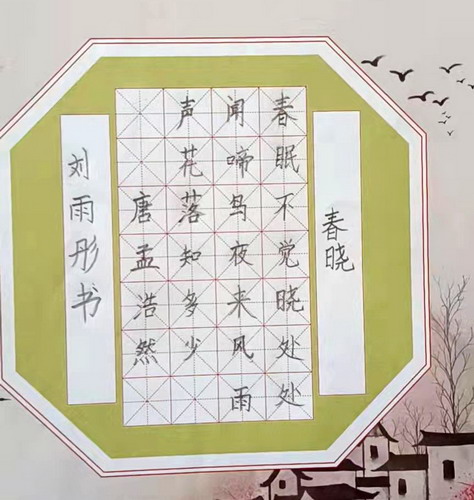 春晓
春眠不觉晓处处
闻啼鸟夜来风雨
声花落知多少
唐孟浩然
刘雨彤书